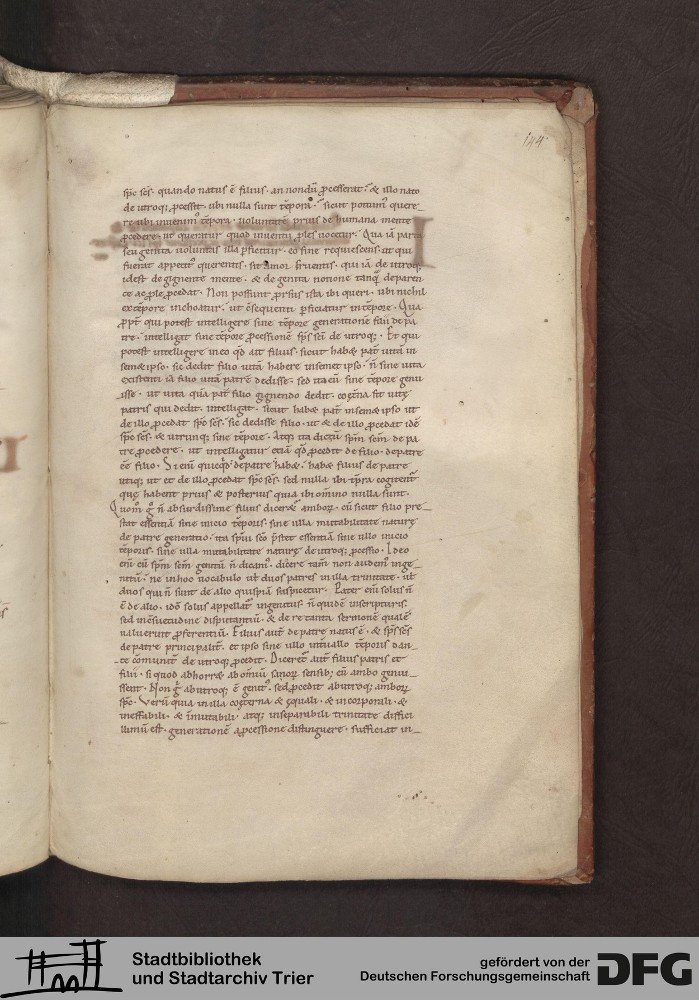 144
sp̅c sc̅s · quando natus ē filius · an nondū ꝓcesserat · & illo nato
de utroq; ꝓcessit · ubi nulla sunt tēpora · sicut potuim᷒ quere_
re ubi inuenim᷒ tēpora · uoluntatē prius de humana mente
ꝓcedere · ut queratur quod inuentū ꝓles uocetur · Qua iā parta
seu genita uoluntas illa ꝑficitur · eo fine requiescens · ut qui
fuerat appetit᷒ querentis · sit amor fruentis · qui iā de utroq;
idest de gignente mente · & de genita notione tanquā de paren
te ac ꝓle ꝓcedat · Non possunt ꝓrsus ista ibi queri · ubi nichil
ex tēpore inchoatur · ut c̅sequenti ꝑficiatur in tēpore · Qua
ꝓpt̄ qui potest intelligere sine tēpore generationē filii de pa
tre · intelligat sine tēpore ꝓcessionē sp̅s sc̅i de utroq; · Et qui
potest intelligere in eo qd̄ ait filius · sicut habet pat̄ uitā in
semet ipso · sic dedit filio uitā habere in semet ipso · n̄ sine uita
existenti iā filio uitā patrē dedisse · sed ita eū sine tēpore genu
isse · ut uita quā pat̄ filio gignendo dedit · coęt̄na sit uitę
patris qui dedit · intelligat · sicut habet pat̄ in semet ipso ut
de illo ꝓcedat sp̅c sc̅s · sic dedisse filio · ut & de illo ꝓcedat idē
sp̅c sc̅s · & utrunq; sine tēpore · Atq; ita dictū sp̅m sc̅m de pa
tre ꝓcedere · ut intelligatur etiā qd̄ ꝓcedit de filio · de patre
ēē filio · Si eni̅ quicqd̄ de patre habet · habet filius de patre
utiq; ut et de illo ꝓcedat sp̅c sc̅s · sed nulla ibi tp̅ra cogitent᷒
quę habent prius & posterius quia ibi omnino nulla sunt ·
Quom̊ g̊ n̄ absurdissime filius diceret᷒ amborꝝ · cū sicut filio prę_
stat essentiā sine inicio tēporis · sine ulla mutabilitate naturę
de patre generatio · ita spiritui sc̅o prestet essentiā sine ullo inicio
tēporis · sine ulla mutabilitate naturę de utroq; ꝓcessio · Ideo
eni̅ cū sp̅m sc̅m genitū n̄ dicam᷒ · dicere tam̄ non audem᷒ inge_
nitū · ne in hoc uocabulo ut̄ duos patres in illa trinitate · ut̄
duos qui n̄ sunt de alio quispiā suspicetur · Pater eni̅ solus n̄
ē de alio · ido̅ solus appellat᷒ ingenitus · n̄ quidē in scripturis ·
sed in c̅suetudine disputantiū · & de re tanta sermonē qualē
ualuerint ꝓferentiū · Filius aut̄ de patre natus ē · & sp̅s sc̅s
de patre principalit̄ · et ipso sine ullo int̄uallo tēporis dan_
te comunit̄ de utroq; ꝓcedit · Diceret᷒ aut̄ filius patris et
filii · si quod abhorret ab omniū sanorꝝ sensib; eū ambo genuis_
sent · Non g̊ ab utroq; ē genit᷒ · sed ꝓcedit ab utroq; amborꝝ
sp̅c · Verū quia in illa coęterna & ęquali · & incorporali · &
ineffabili · & inmutabili · atq; inseparabili trinitate diffici
llimū est · generationē a ꝓcessione distinguere · sufficiat in_
Stadtbibliothek
und Stadtarchiv Trier
gefördert von der
Deutschen Forschungsgemeinschaft
DFG